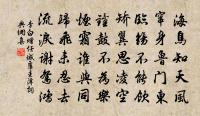 海鳥知天風
竄身魯門東
臨觴不能飲
矯翼思凌空
鐘鼓不為樂
煙霜誰與同
歸飛未忍去
流淚謝鴛鴻
李白贈任城盧主簿潛